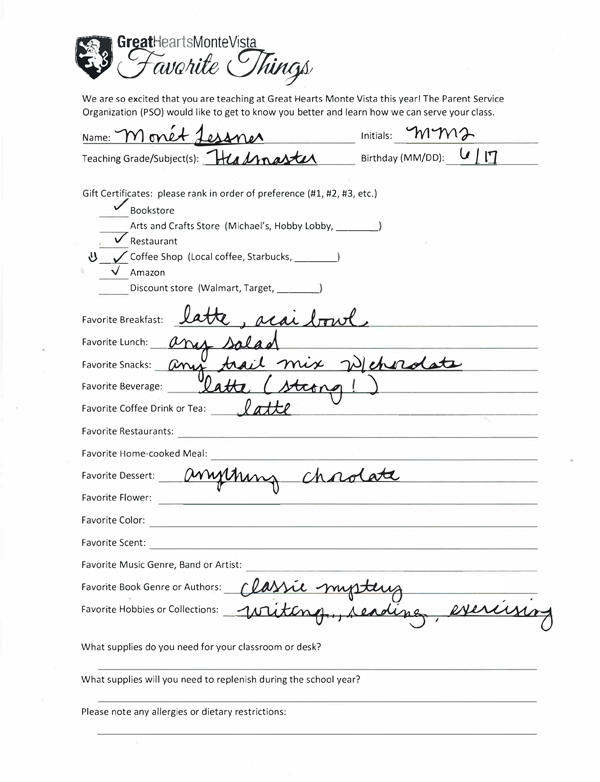 GreatHeartsMonteVista
Favorite Things
We are so excited that you are teaching at Great Hearts Monte Vista this year! The Parent Service
Organization (PSO) would like to get to know you better and learn how we can serve your class.
Name: Monét Lessner Initials: MML
Teaching Grade/Subject(s): Headmaster Birthday (MM/DD): 6/17
Gift Certificates: please rank in order of preference (#1, #2, #3, etc.)
✓ Bookstore
Arts and Crafts Store (Michael's, Hobby Lobby, ________)
✓ Restaurant
☺ ✓ Coffee Shop (Local coffee, Starbucks, ________)
✓ Amazon
Discount store (Walmart, Target, ________)
Favorite Breakfast: latte, acai bowl
Favorite Lunch: any salad
Favorite Snacks: any trail mix w/chocolate
Favorite Beverage: latte (strong!)
Favorite Coffee Drink or Tea: latte
Favorite Restaurants:
Favorite Home-cooked Meal:
Favorite Dessert: anything chocolate
Favorite Flower:
Favorite Color:
Favorite Scent:
Favorite Music Genre, Band or Artist:
Favorite Book Genre or Authors: classic mystery
Favorite Hobbies or Collections: writing, reading, exercising
What supplies do you need for your classroom or desk?
What supplies will you need to replenish during the school year?
Please note any allergies or dietary restrictions: